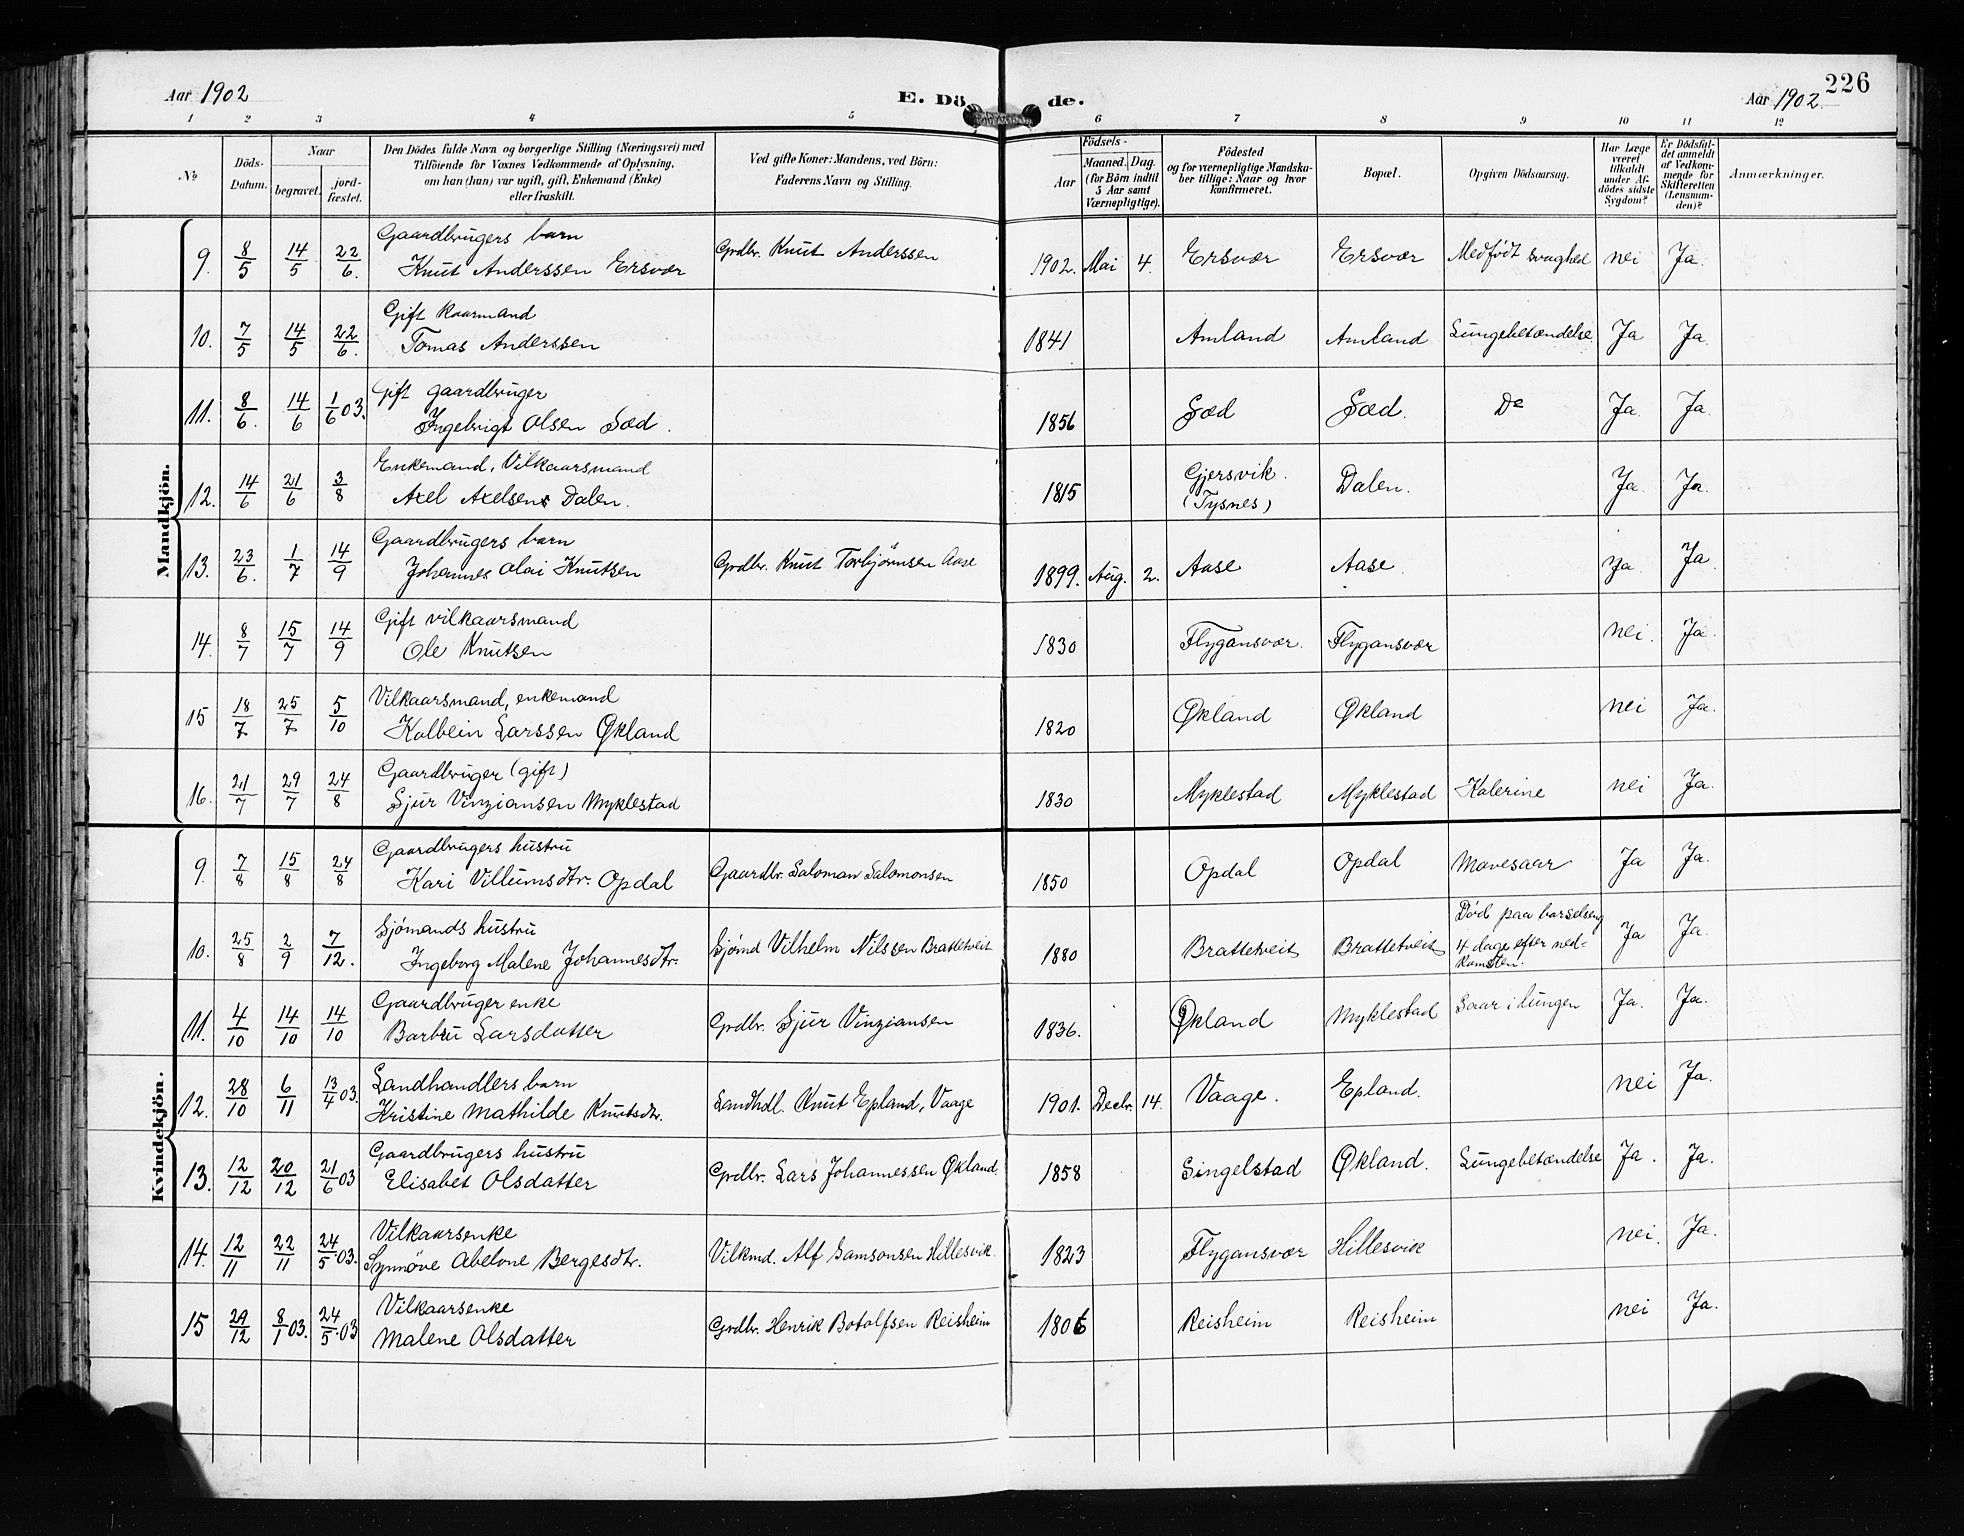 Aar 1902 E. Dö de. Aar 1902. 226
1 2 3 4 5 6 7 8 9 10 11 12
No
Döds-
Datum.
Naar
begravet.
jord-
fæstet.
Den Dödes fulde Navn og borgerlige Stilling (Næringsvei) med
Tilföiende for Voxnes Vedkommende af Oplysning,
om han (hun) var ugift, gift, Enkemand (Enke)
eller fraskilt.
Ved gifte Koner: Mandens, ved Börn:
Faderens Navn og Stilling.
Födsels-
Aar
Maaned. Dag.
(for Börn indtil
5 Aar samt
Værnepligtige).
Födested
og for værnepligtige Mandska-
ber tillige: Naar og hvor
konfirmeret.
Bopæl.
Opgiven Dödsaarsag.
Har Læge
været
tilkaldt
under Af-
dödes sidste
Sygdom?
Er Dödsfal-
det anmeldt
af Vedkom-
mende for
Skifteretten
(Lensman-
den)?
Anmærkninger.
Mandkjön.
9. 8/5 14/5 22/6. Gaardbrugers barn
Knut Anderssen Ersvær Grdbr. Knut Anderssen 1902. Mai 4. Ersvær Ersvær Medfødt svaghed nei Ja.
10. 7/5 14/5 22/6. Gift kaarmand
Tomas Anderssen 1841 Amland Amland Lungebetændelse Ja Ja.
11. 8/6. 14/6 1/6 03. Gift gaardbruger
Ingebrigt Olsen Sæd. 1856 Sæd Sæd. Do Ja. Ja.
12. 14/6 21/6 3/8 Enkemand, Vilkaarsmand
Axel Axelsen Dalen. 1815 Gjersvik.
(Tysnes) Dalen. Ja. Ja.
13. 23/6. 1/7 14/9 Gaardbrugers barn
Johannes Olai Knutsen Grdbr. Knut Torbjørnsen Aase 1899. Aug. 2. Aase Aase. Ja. Ja.
14. 8/7 15/7 14/9 Gift vilkaarsmand
Ole Knutsen 1830 Flygansvær. Flygansvær nei. Ja.
15 18/7 25/7 5/10 Vilkaarsmand, enkemand
Kolbein Larssen Økland 1820 Økland Økland nei Ja.
16. 21/7 29/7 24/8 Gaardbruger (gift)
Sjur Vinziansen Myklestad 1830 Myklestad Myklestad Kolerine nei Ja.
Kvindekjön.
9. 7/8 15/8 24/8 Gaardbrugers hustru
Kari Villumsdtr. Opdal Gaardbr. Saloman Salomonsen 1850 Opdal Opdal Mavesaar Ja Ja.
10. 25/8 2/9 7/12. Sjømands hustru
Ingeborg Malene Johannesdtr. Sjømd Vilhelm Nilssen Brattetveit 1880 Brattetveit Brattetveit Død paa barselseng
4 dage efter ned-
komsten. Ja Ja.
11. 4/10 14/10 14/10 Gaardbruger enke
Barbru Larsdatter Grdbr. Sjur Vinziansen 1836. Økland Myklestad Saar i lungen Ja. Ja.
12. 28/10 6/11 13/4 03. Landhandlers barn
Kristine Mathilde Knutsdtr. Landhdl. Knut Epland, Vaage 1901. Decbr. 14. Vaage. Epland. nei Ja.
13. 12/12 20/12 21/6 03 Gaardbrugers hustru
Elisabet Olsdatter Grdbr. Lars Johannessen Økland. 1858 Singelstad Økland. Lungebetændelse Ja. Ja.
14. 12/11 22/11 24/5.03. Vilkaarsenke
Synnøve Abelone Bergesdtr. Vilkmd. Alf Samsonsen Hillesvik. 1823 Flygansvær Hillesvik nei. Ja.
15 29/12 8/1 03. 24/5.03 Vilkaarsenke
Malene Olsdatter Grdbr. Henrik Botolfsen Reisheim 1806 Reisheim Reisheim nei Ja.